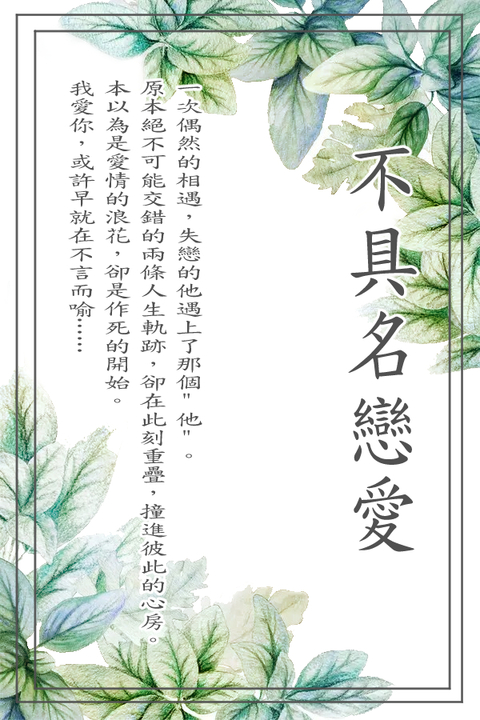 不具名戀愛
一次偶然的相遇，失戀的他遇上了那個"他"。
原本絕不可能交錯的兩條人生軌跡，卻在此刻重疊，撞進彼此的心房。
本以為是愛情的浪花，卻是作死的開始。
我愛你，或許早就在不言而喻……